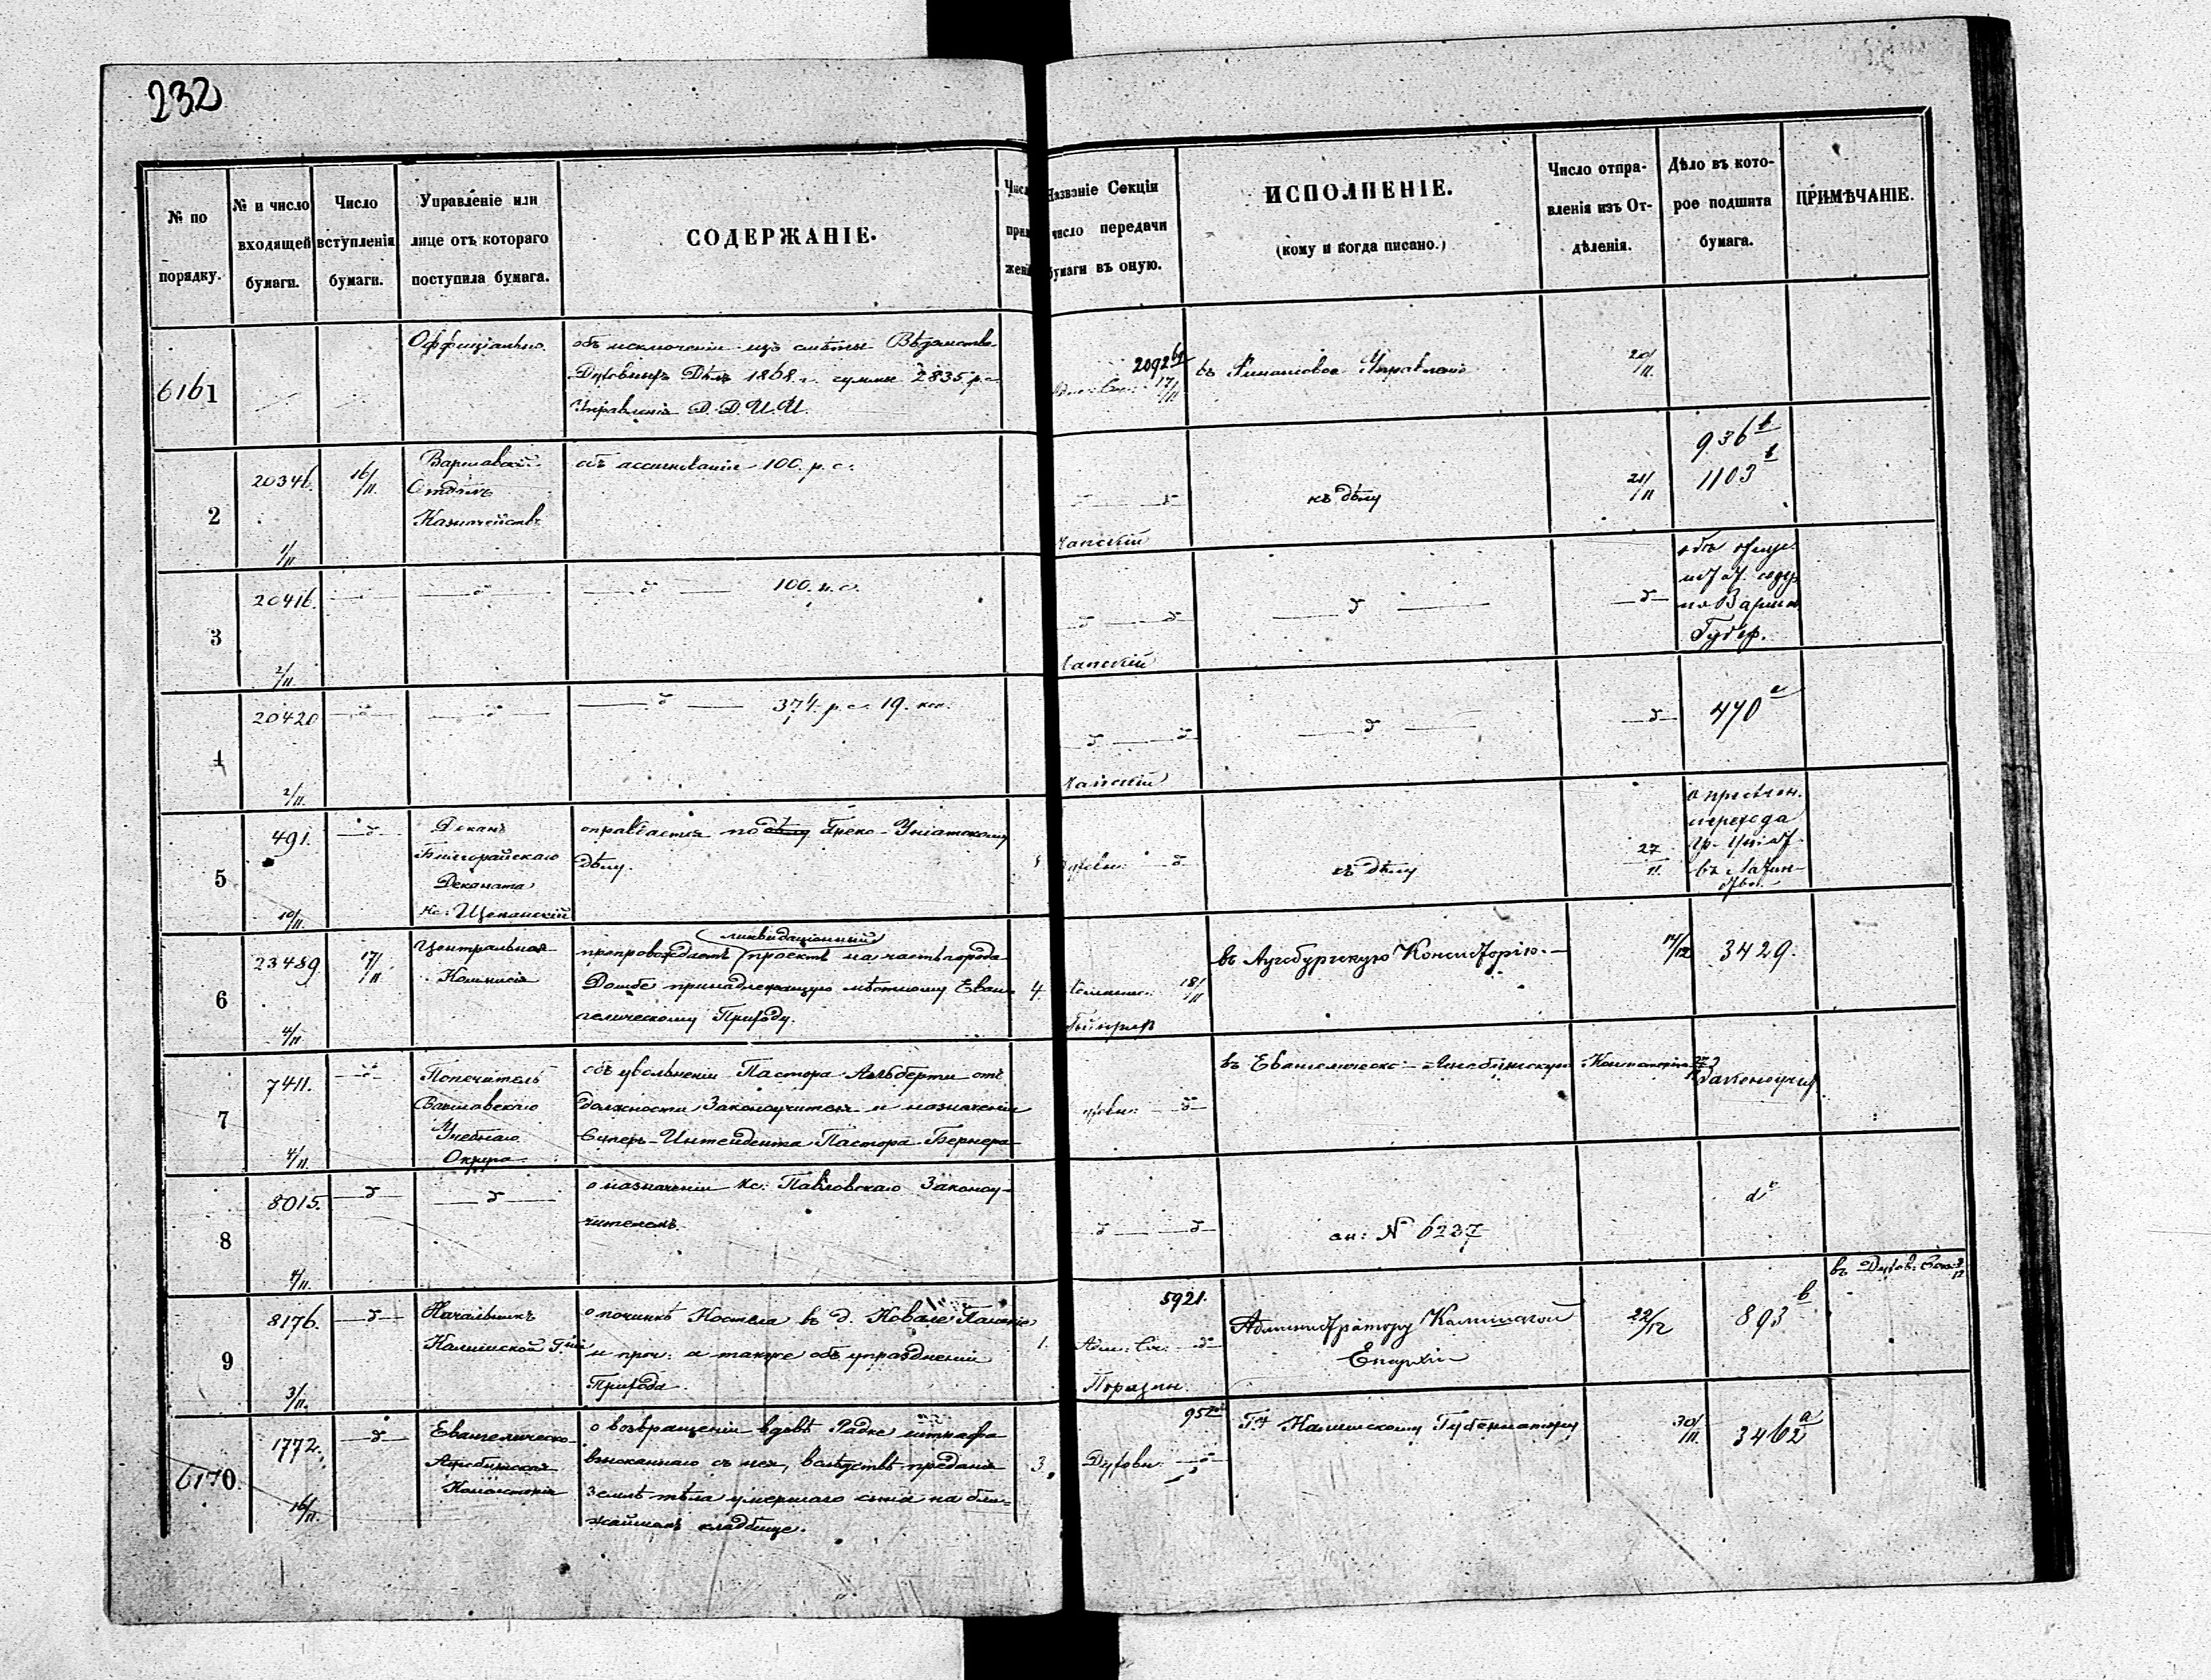 232
№ по
порядку.
№ и число
входящей
бумаги.
Число
вступленія
бумаги.
Управленіе или
лице отъ котораго
поступила бумага.
СОДЕРЖАНІЕ.
Названіе Секціи
число передачи
бумаги въ оную.
ИСПОЛНЕНІЕ.
(кому и когда писано.)
Число отпра-
вленія изъ От-
дѣленія.
Дѣло въ кото-
рое подшита
бумага.
ПРИМѢЧАНІЕ.
6161
Оффиціально.
объ исключеніи изъ смѣты Вѣдомства
Духовныхъ Дѣлъ 1868 г. суммы 2835 р. с.
Управленія Д. Д. И. И.
2092
17/11
въ Финансовое Управленіе
20/11.
2
20346.
1/11
16/11.
Варшавской
Отдѣлъ
Казначейств.
объ ассигнованіи 100. р. с.
къ дѣлу
21/11
936 b
1103 b
3
20416.
2/11
100. р. с.
Губер.
4
20420
2/11.
374. р. с. 19. коп.
470
5
491.
10/11.
Деканъ
Билгорайскаго
Деканата
кс: Щепанскій
оправдается по дѣлу Греко-Уніатскому
дѣлу.
къ дѣлу
27
11.
перехода
6
23489
4/11
17/11
Центральная
Коммисія
ликвидаціонный
препровождаетъ проектъ на часть города
Домбе принадлежащую мѣстному Еван-
гелическому Приходу.
4
18/11
въ Аугсбургскую Консисторію.—
3429.
7
7411.
4/11.
Попечитель
Варшавскаго
Учебнаго
Округа
объ увольненіи Пастора Альберти отъ
должности Законоучителя и назначеніи
Супер-Интендента Пастора Бернера
въ Евангелическо-Аугсбургскую Консисторію
Законоучит.
8
8015.
4/11.
о назначеніи кс: Павловскаго Законоу-
чителемъ.
см: № 6237
9
8176.
3/11.
Начальникъ
Калишской Г-ніи
о починкѣ Костела въ д. Ковале Панскіе
и проч: а также объ упраздненіи
Прихода.
1.
5921.
Адм: Сек:
Администратору Калишской
Епархіи
22/12
893 b
6170.
1772.
16/11.
Евангелическо-
Аугсбургская
Консисторія
о возвращеніи вдовѣ Радке штрафа
взысканнаго съ нея, вслѣдствіе преданія
землѣ тѣла умершаго сына на бли-
жайшемъ кладбище.
3.
Духовн:
Г-ну Калишскому Губернатору
30/11.
3462 a